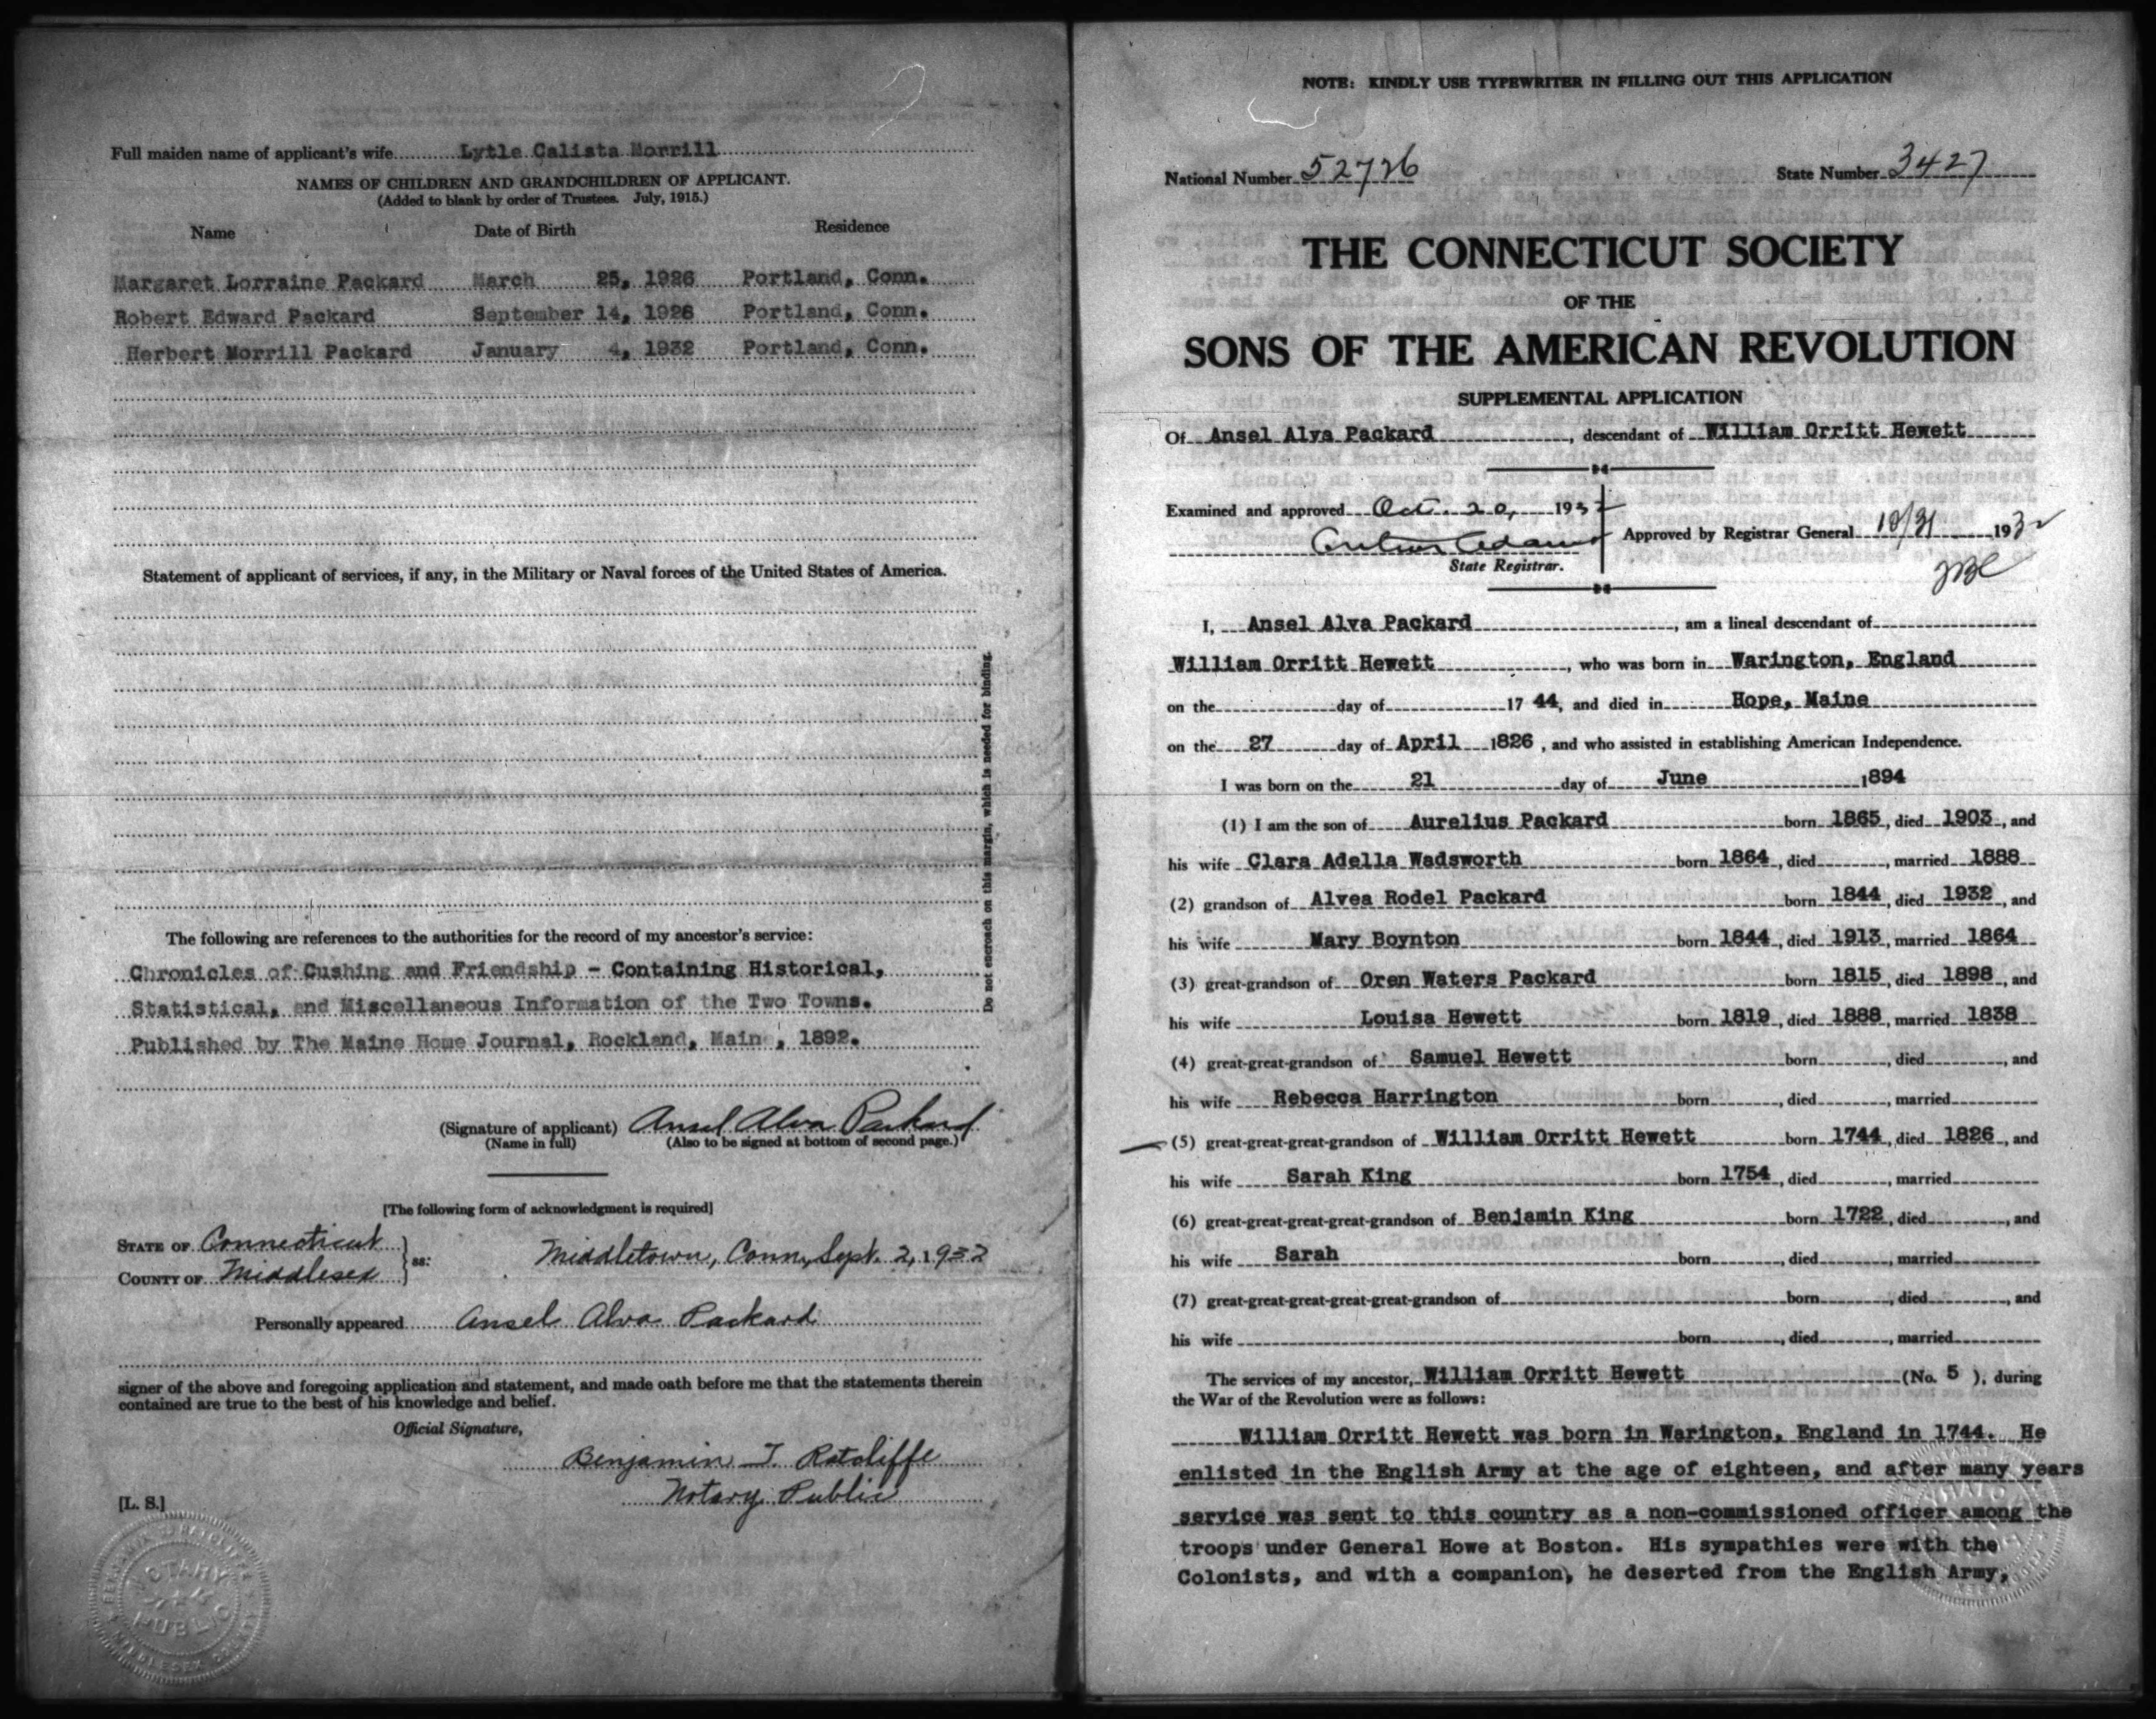 Full maiden name of applicant's wife Lytle Calista Morrill
NAMES OF CHILDREN AND GRANDCHILDREN OF APPLICANT.
(Added to blank by order of Trustees. July, 1915.)
Name Date of Birth Residence
Margaret Lorraine Packard March 25, 1926 Portland, Conn.
Robert Edward Packard September 14, 1928 Portland, Conn.
Herbert Morrill Packard January 4, 1932 Portland, Conn.
Statement of applicant of services, if any, in the Military or Naval forces of the United States of America.
Do not encroach on this margin, which is needed for binding.
The following are references to the authorities for the record of my ancestor's service:
Chronicles of Cushing and Friendship - Containing Historical,
Statistical, and Miscellaneous Information of the Two Towns.
Published by The Maine Home Journal, Rockland, Maine, 1892.
(Signature of applicant) Ansel Alva Packard
(Name in full) (Also to be signed at bottom of second page.)
[The following form of acknowledgment is required]
STATE OF Connecticut
COUNTY OF Middlesex ss: Middletown, Conn., Sept. 2, 1932
Personally appeared Ansel Alva Packard
signer of the above and foregoing application and statement, and made oath before me that the statements therein
contained are true to the best of his knowledge and belief.
Official Signature,
Benjamin T. Ratcliffe
Notary Public
[L. S.]
BENJAMIN T. RATCLIFFE
NOTARY
PUBLIC
MIDDLESEX COUNTY
NOTE: KINDLY USE TYPEWRITER IN FILLING OUT THIS APPLICATION
National Number 52726 State Number 3427
THE CONNECTICUT SOCIETY
OF THE
SONS OF THE AMERICAN REVOLUTION
SUPPLEMENTAL APPLICATION
Of Ansel Alva Packard, descendant of William Orritt Hewett
Examined and approved Oct. 20, 1932
Approved by Registrar General 10/31 1932
Arthur Adams
State Registrar.
I, Ansel Alva Packard, am a lineal descendant of
William Orritt Hewett, who was born in Warington, England
on the day of 17 44, and died in Hope, Maine
on the 27 day of April 1826, and who assisted in establishing American Independence.
I was born on the 21 day of June 1894
(1) I am the son of Aurelius Packard born 1865, died 1903, and
his wife Clara Adella Wadsworth born 1864, died , married 1888
(2) grandson of Alvea Rodel Packard born 1844, died 1932, and
his wife Mary Boynton born 1844, died 1913, married 1864
(3) great-grandson of Oren Waters Packard born 1815, died 1898, and
his wife Louisa Hewett born 1819, died 1888, married 1838
(4) great-great-grandson of Samuel Hewett born , died , and
his wife Rebecca Harrington born , died , married
(5) great-great-great-grandson of William Orritt Hewett born 1744, died 1826, and
his wife Sarah King born 1754, died , married
(6) great-great-great-great-grandson of Benjamin King born 1722, died , and
his wife Sarah born , died , married
(7) great-great-great-great-great-grandson of born , died , and
his wife born , died , married
The services of my ancestor, William Orritt Hewett (No. 5 ), during
the War of the Revolution were as follows:
William Orritt Hewett was born in Warington, England in 1744. He
enlisted in the English Army at the age of eighteen, and after many years
service was sent to this country as a non-commissioned officer among the
troops under General Howe at Boston. His sympathies were with the
Colonists, and with a companion, he deserted from the English Army,